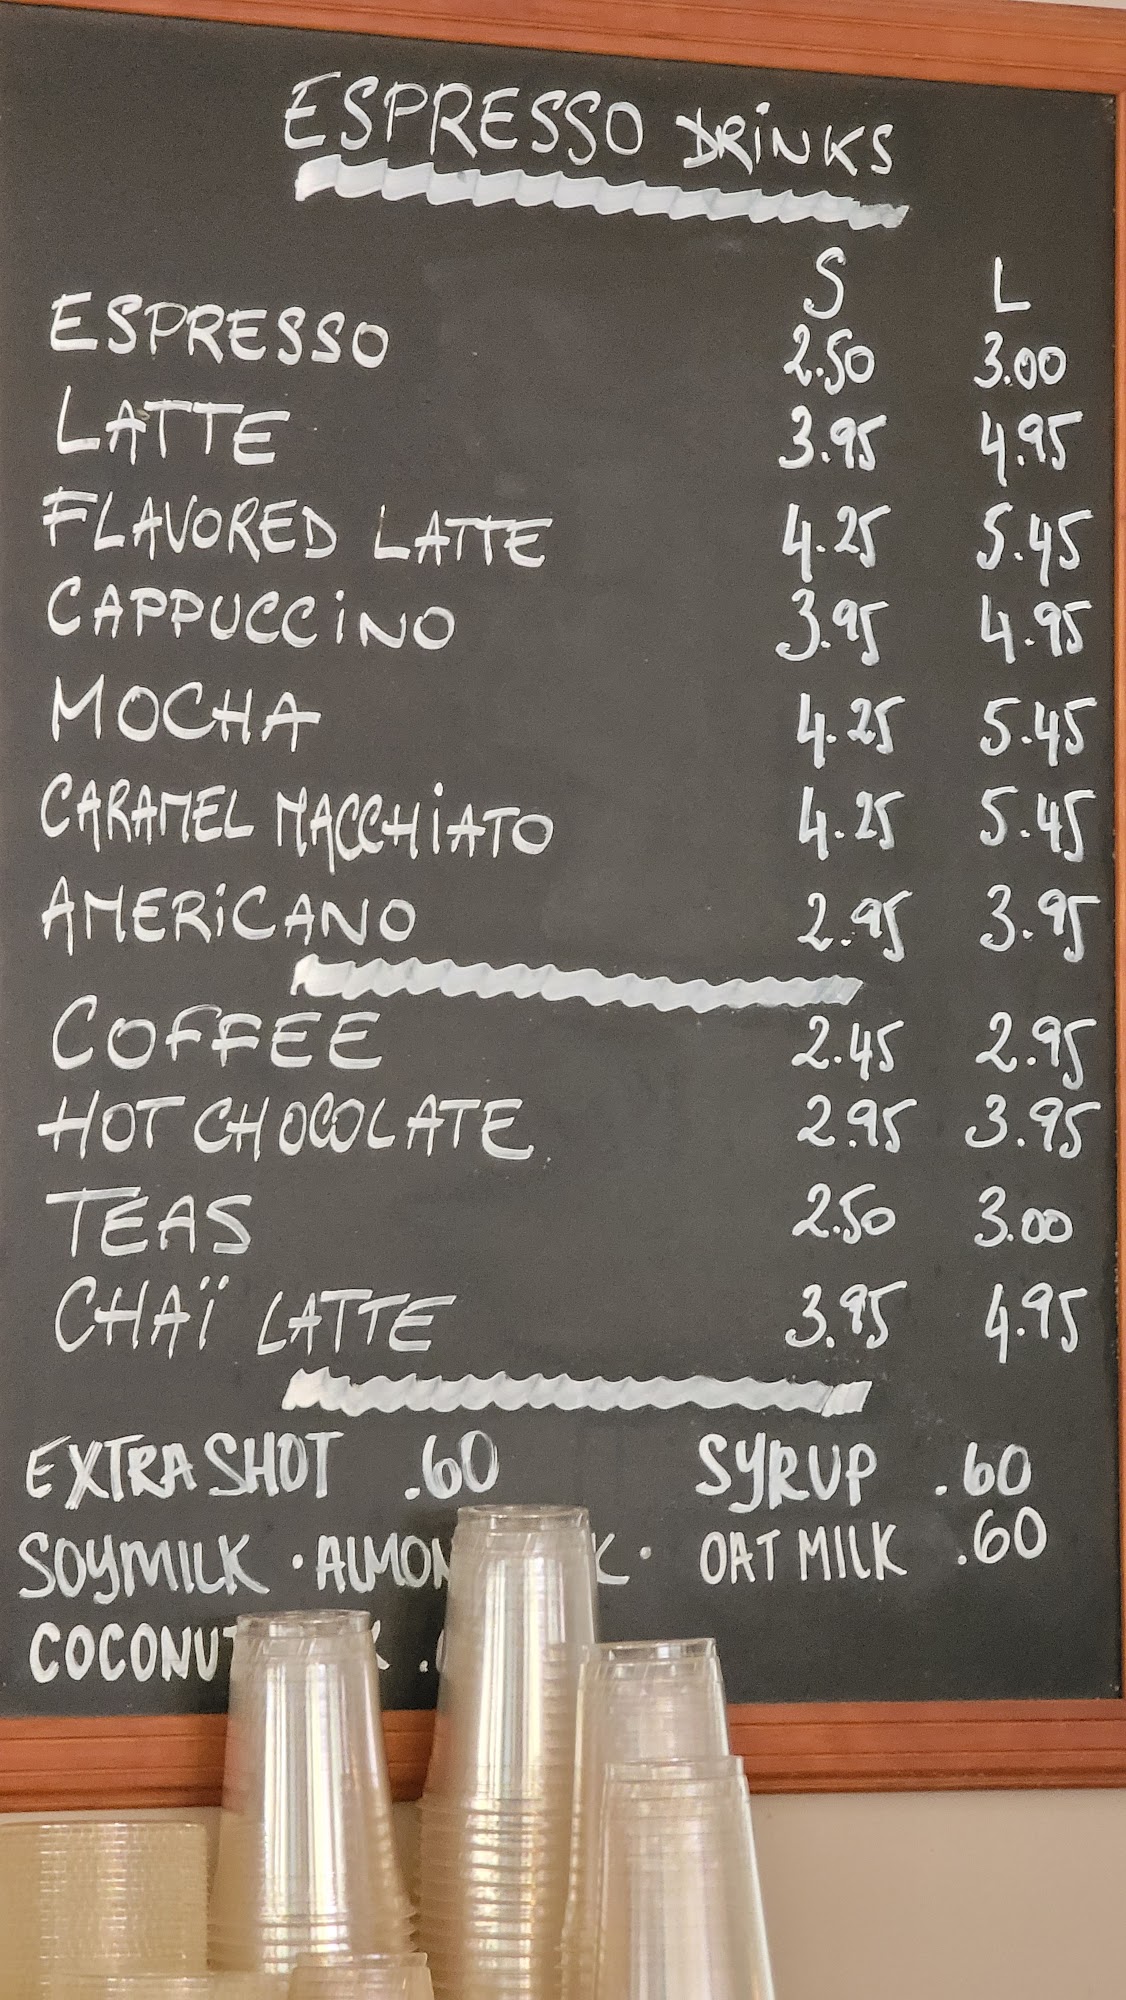 ESPRESSO DRiNKS
S L
ESPRESSO 2.50 3.00
LATTE 3.95 4.95
FLAVORED LATTE 4.25 5.45
CAPPUCCiNO 3.95 4.95
MOCHA 4.25 5.45
CARAMEL MACCHiATO 4.25 5.45
AMERiCANO 2.95 3.95
COFFEE 2.45 2.95
HOT CHOCOLATE 2.95 3.95
TEAS 2.50 3.00
CHAÏ LATTE 3.95 4.95
EXTRA SHOT .60 SYRUP .60
SOYMILK · · OAT MILK .60